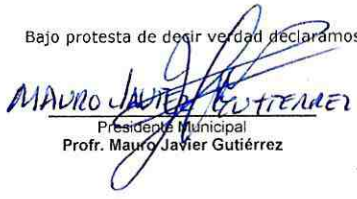 Bajo protesta de decir verdad declaramos
MAURO JAVIER GUTIERREZ
Presidente Municipal
Profr. Mauro Javier Gutiérrez